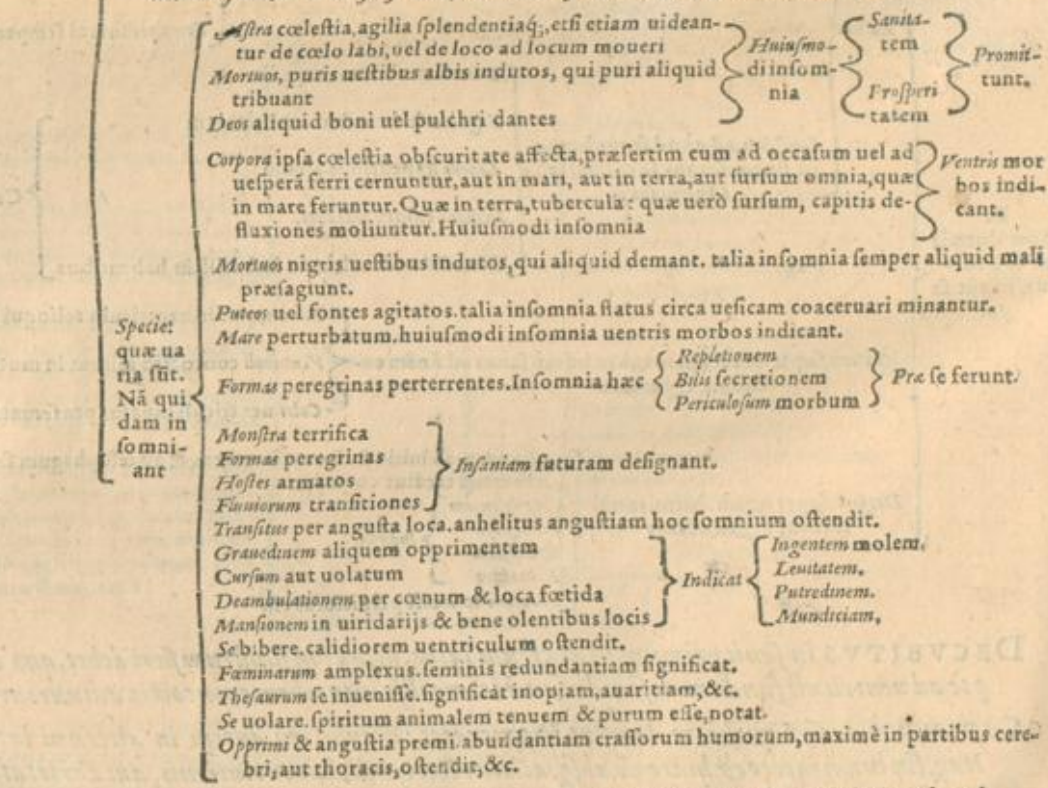 Astra cœlestia, agilia splendentiaq́;, etsi etiam uidean-
tur de cœlo labi, uel de loco ad locum moueri
Mortuos, puris uestibus albis indutos, qui puri aliquid
tribuant
Deos aliquid boni uel pulchri dantes
Huiusmo-
di insom-
nia
Sanita-
tem
Prosperi
tatem
Promit-
tunt.
Corpora ipsa cœlestia obscuritate affecta, præsertim cum ad occasum uel ad
uesperã ferri cernuntur, aut in mari, aut in terra, aut sursum omnia, quæ
in mare feruntur. Quæ in terra, tubercula: quæ uerò sursum, capitis de-
fluxiones moliuntur. Huiusmodi insomnia
Ventris mor
bos indi-
cant.
Mortuos nigris uestibus indutos, qui aliquid demant. talia insomnia semper aliquid mali
præsagiunt.
Puteos uel fontes agitatos. talia insomnia flatus circa uesicam coaceruari minantur.
Mare perturbatum. huiusmodi insomnia uentris morbos indicant.
Species
quæ ua
ria sũt.
Nã qui
dam in
somni-
ant
Formas peregrinas perterrentes. Insomnia hæc
Repletionem
Bilis secretionem
Periculosum morbum
Præ se ferunt.
Monstra terrifica
Formas peregrinas
Hostes armatos
Fluuiorum transitiones
Insaniam futuram designant.
Transitus per angusta loca. anhelitus angustiam hoc somnium ostendit.
Grauedinem aliquem opprimentem
Cursum aut uolatum
Deambulationem per cœnum & loca fœtida
Mansionem in uiridarijs & bene olentibus locis
Indicat
Ingentem molem.
Leuitatem.
Putredinem.
Mundiciam.
Se bibere. calidiorem uentriculum ostendit.
Fœminarum amplexus. seminis redundantiam significat.
Thesaurum se inuenisse. significat inopiam, auaritiam, &c.
Se uolare. spiritum animalem tenuem & purum esse, notat.
Opprimi & angustia premi. abundantiam crassorum humorum, maximè in partibus cere-
bri, aut thoracis, ostendit, &c.